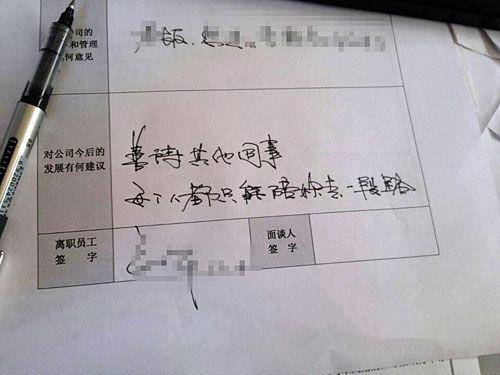 公司的
和管理
何意见
对公司今后的
发展有何建议
善待其他同事
每个人都只能陪你走一段路
离职员工
签 字
面谈人
签 字